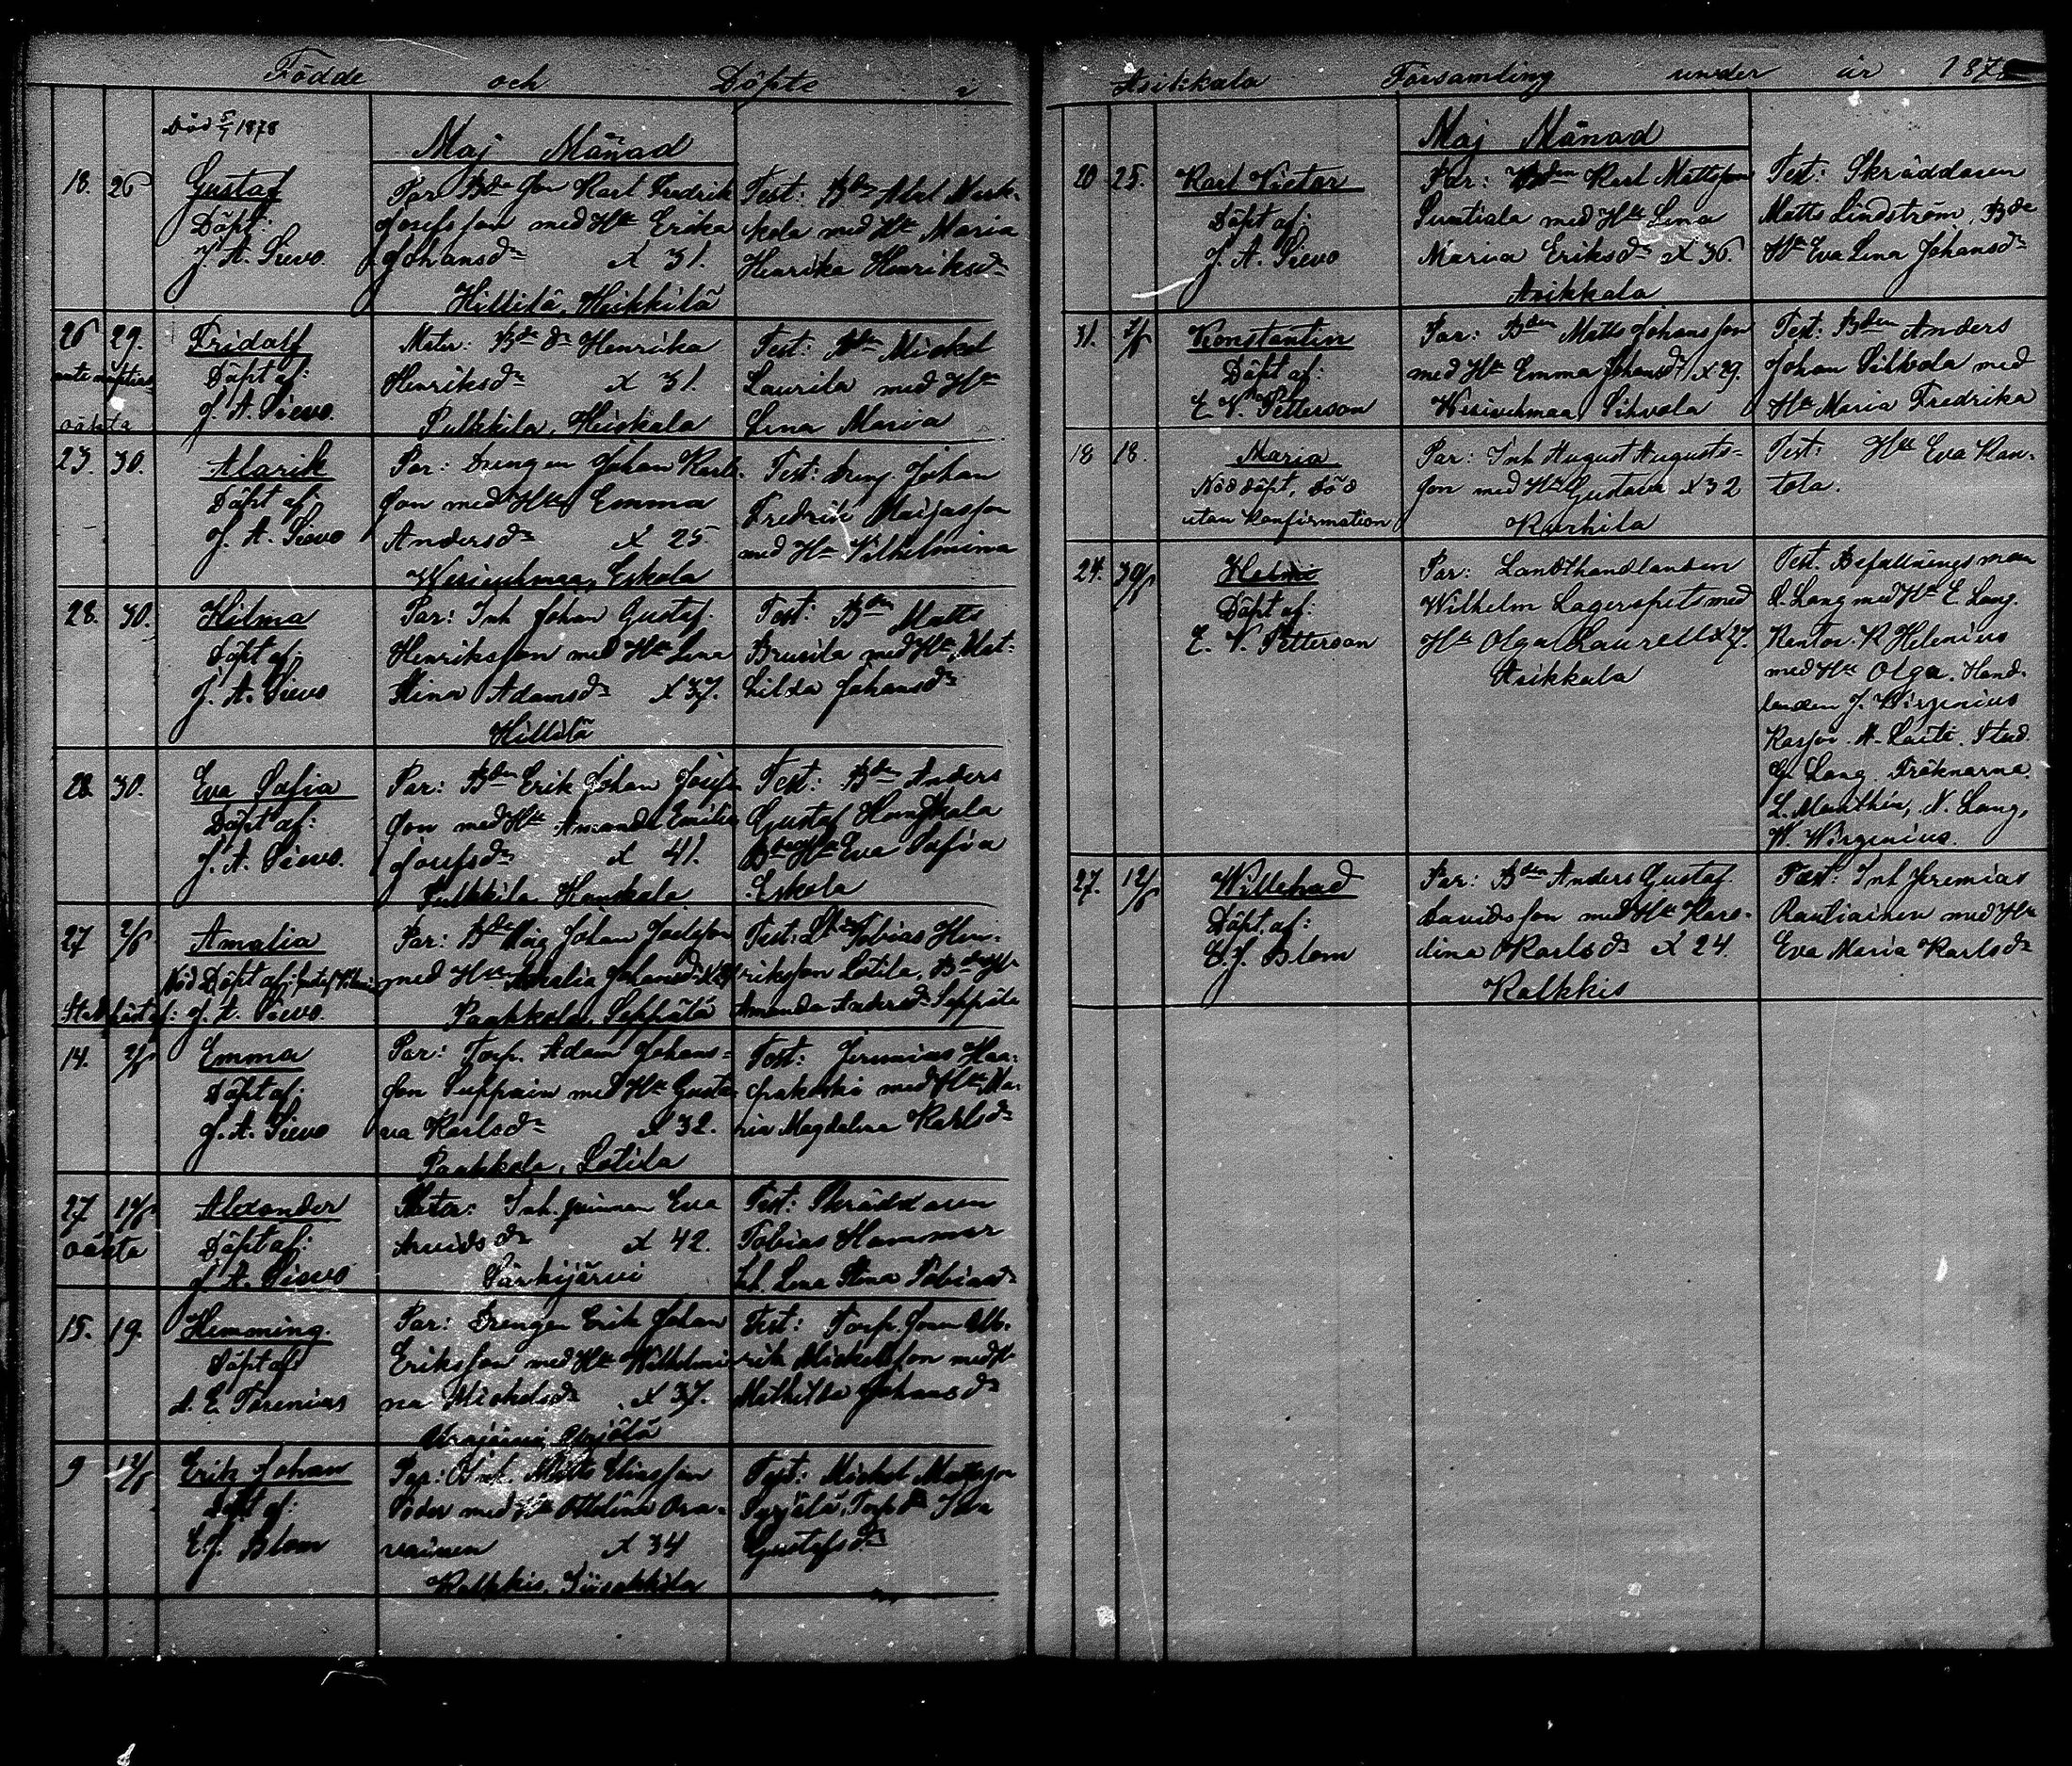 Födde och Döpte i
Död 5/7 1878
Maj Månad
18. 26 Gustaf
Döpt:
J. A. Sievo.
Par Bde Son Karl Fredrik
Josefsson med Hu Erika
Johansdr X 31.
Hillilä, Heikkilä
Test: Bden Abel
med Hu Maria
Henrika Henriksdr
26 29. Fridolf
ante nuptias
Döpt af:
J. A. Sievo.
oäkta
Mater: Bde dr Henrika
Henriksdr X 31.
Pulkkila, Heiskala
Test: Bden Mickel
Laurila med Hu
Lena Maria
23. 30. Alarik
Döpt af:
J. A. Sievo
Par: Drengen Johan Karls-
son med Hu Emma
Andersdr X 25
Wesivehmaa, Eskola
Test: Dreng. Johan
Fredrik
med Hu Vilhelmina
28. 30. Hilma
Döpt af:
J. A. Sievo
Par: Inh Johan Gustaf
Henriksson med Hu Lena
Stina Adamsdr X 37.
Hillilä
Test: Bden Matts
Brusila med Hu Mat-
hilda Johansdr
28. 30. Eva Sofia
Döpt af:
J. A. Sievo.
Par: Bden Erik Johan Josefs-
son med Hu Amanda Emilia
Josefsdr X 41.
Pulkkila
Test: Bden Anders
Gustaf
Eva Sofia
Eskola
27 2/6 Amalia
Nöd Döpt af:
J. A. Sievo.
Par: Bde Måg Johan Joelsson
med Hu Amalia Johansdr
Paakkola, Seppälä
Test: Tobias Hen-
riksson Lötila, Bde Hu
Amanda Andersdr Seppälä
14. 2/6 Emma
Döpt af:
J. A. Sievo
Par: Torp. Adam Johans-
son med Hu Gusta-
va Karlsdr X 32.
Paakkola, Lötila
Test: Jeremias Haa-
pakoski med Hu Ma-
ria Magdalena Karlsdr
27 Alexander
oäkta
Döpt af:
J. A. Sievo
Mater: Inh. qvinnan Eva
Arvidsdr X 42.
Särkijärvi
Test: Skräddaren
Tobias Hammar
Inh. Lena Stina Tobiasdr
15. 19. Hemming.
Döpt af
A. E. Torenius
Par: Drengen Erik Johan
Eriksson med Hu Wilhelmi-
na Mickelsdr X 37.
Urajärvi,
Test: Torp. Son Ulb-
rik Mickelsson med Hu
Mathilda Johansdr
9 12/6 Erik Johan
Döpt af:
E. J. Blom
Par: Inh. Matts Eliasson
Söder med Hu Ottilina Ora-
vainen X 34
Kalkkis,
Test: Mickel Mattsson
Gustafsdr
Asikkala Församling under år 1878
Maj Månad
20 25. Karl Victor
Döpt af:
J. A. Sievo
Par: Bden Karl Mattsson
Suntiala med Hu Lena
Maria Eriksdr X 36.
Asikkala
Test: Skräddaren
Matts Lindström, Bde
Hu Eva Lena Johansdr
31. Konstantin
Döpt af:
E. V. Petterson
Par: Bden Matts Johansson
med Hu Emma Johansdr X 29.
Wesivehmaa, Sihvola
Test: Bden Anders
Johan Sihvola med
Hu Maria Fredrika
18 18. Maria
Nöd döpt, död
utan konfirmation
Par: Inh August Augusts-
son med Hu Gustava X 32
Kurhila
Test: Hu Eva Kan-
tola.
24. 30/6 Helmi
Döpt af:
E. V. Petterson
Par: Landthandlanden
Wilhelm Lagerspets med
Hu Olga Laurell X 27.
Asikkala
Test. Befallningsman
L. Lang med Hu E. Lang.
Kantor. K Helenius
med Hu Olga. Hand-
landen J. Wirzenius
Stud.
G. Lang. Fröknarna
L. Manthén, N. Lang,
W. Wirzenius.
27. 12/6 Willehad
Döpt af:
E. J. Blom
Par: Bden Anders Gustaf
Davidsson med Hu Karo-
lina Karlsdr X 24.
Kalkkis
Test: Inh Jeremias
Rautiainen med Hu
Eva Maria Karlsdr